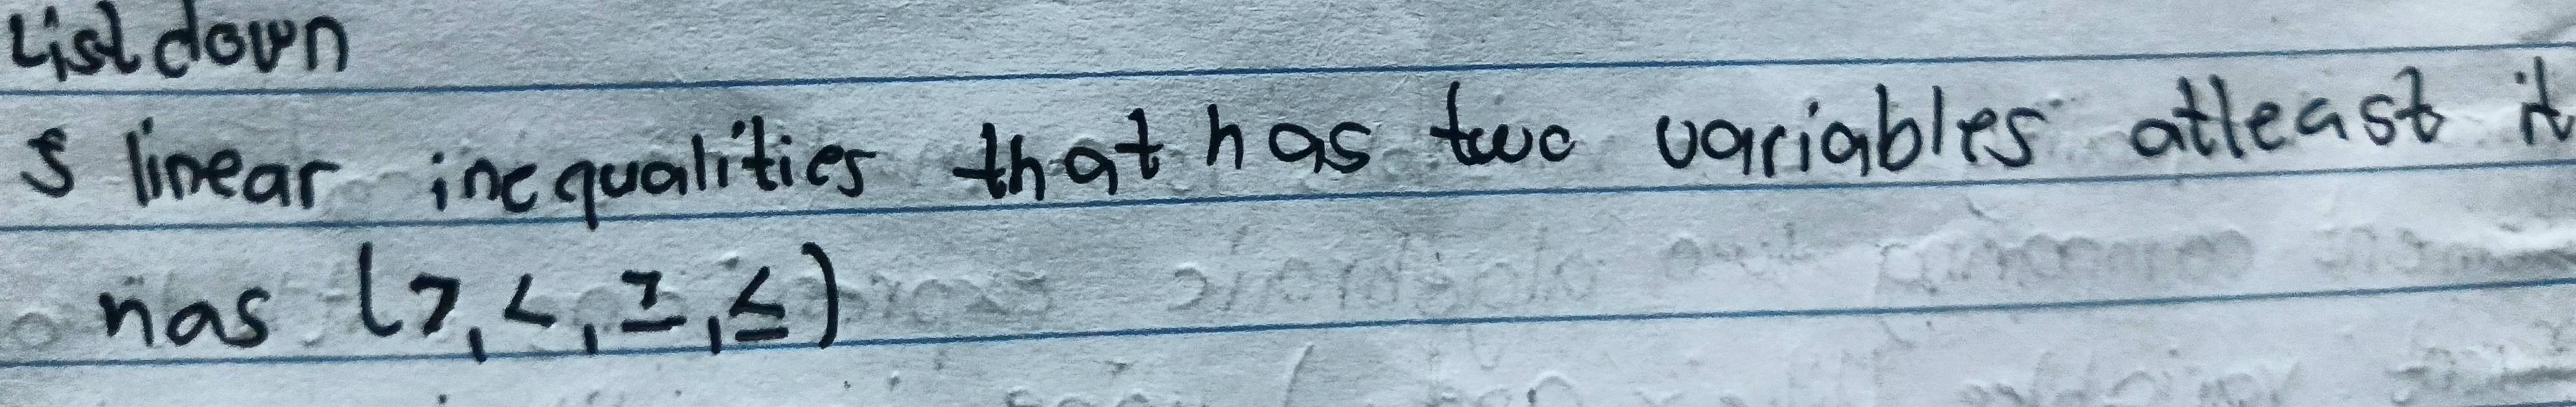 List down
5 linear inequalities that has two variables atleast it
has (>, <, ≥, ≤)